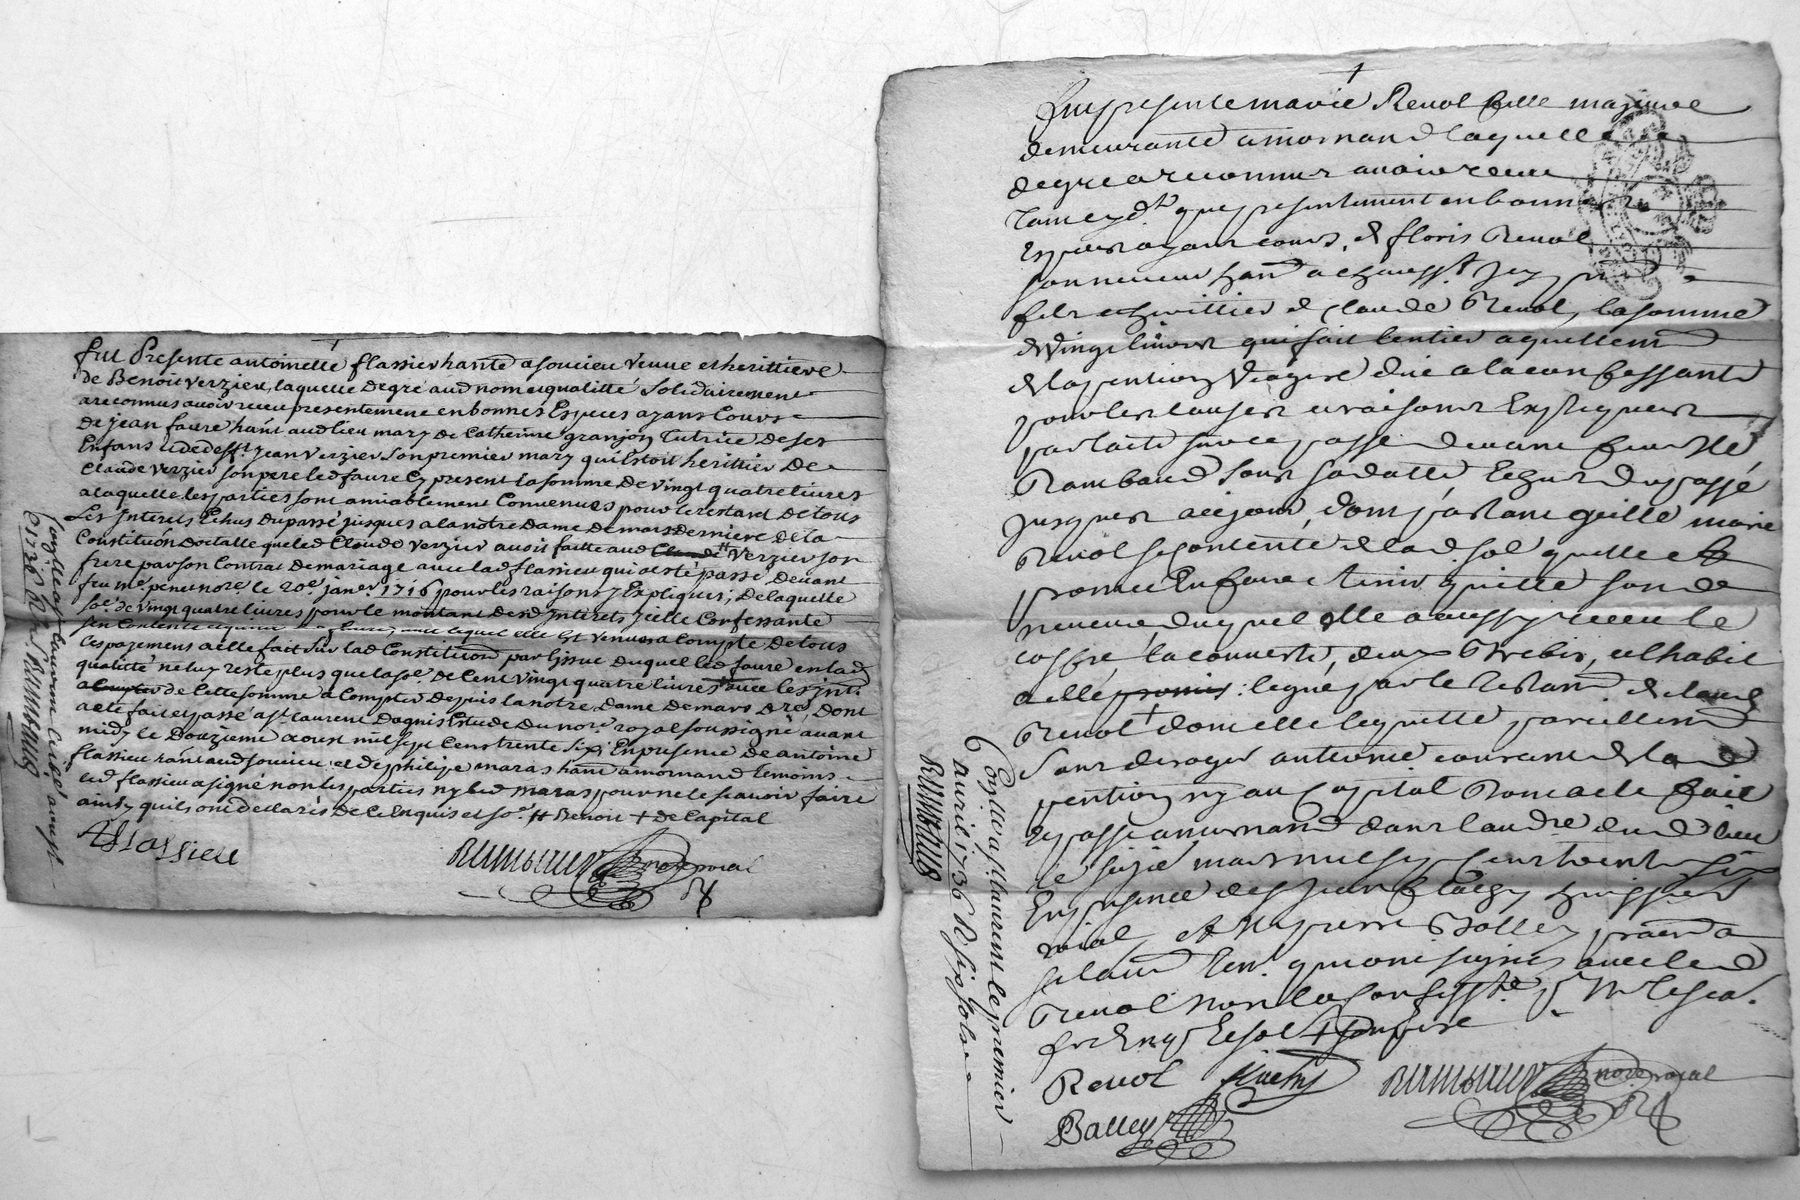 fut Presente antoinette flassieu hante a soucieu veuve et herittiere
de Benoit verzieu, laquelle de gré aud nom et qualitté solidairement
a reconnus avoir receu presentement en bonnes Especes ayans Cours
de jean faure hant aud lieu mary de Catherine granjon tutrice de ses
Enfans et de deft jean verzier son premier mary qui Estoit herittier de
Claude verzier son pere led faure Cy present la somme de vingt quatre livres
a laquelle les parties sont amiablement Convenues pour le restant de tous
Les Interets Echus du passé jusques a la notre dame de mars derniere de la
Constitution dotalle que led Claude verzier avoit faitte aud verzier son
frere par son Contrat de mariage avec lad flassieu qui a esté passé devant
feu me penet nore. le 20e. janer. 1716 pour les raisons y Expliqués, de laquelle
soe. de vingt quatre livres pour le montant desd Interets jcelle Confessante
sen Contente
Ces payemens a elle fait sur lad Constitution par Ljssue duquel led faure en lad
qualitté ne luy reste plus que la soe. de Cent vingt quatre livres avec les jnts
a Compter de Cette somme a Compter depuis la notre dame de mars dre, dont
acte fait et passé a st. laurent dagnis Estude du nore. royal soussigné avant
midy le Douzieme aoust mil sept Cens trente six, En presence de antoine
flassieu hant aud soucieu, et de philipe maras hant a mornand temoins
led flassieu a signé non les parties ny led maras pour ne le scavoir faire
ainsy quils ont declarés de Ce Enquis et so. # Benoit + de Capital
AFlassieu
RIMBAUD nore royal
Con͞llé a st laurent Ce 22e aoust
1736 R six sols. RIMBAUD
+
fut presente marie Revol fille majeure
demeurante a mornand laquelle
de gré a reconnus avoir receu
tant cy dt. que presentement en bonnes
Especes ayant cours, de floris Revol
son neveu hant a chaussant jcy pnt
fils et herittier de claude Revol, la somme
de vingt livres qui fait lentier aquittement
de la pention viagere due a la confessante
pour les causes et raisons Expliquees
par lacte sur ce passé devant feu Me
Rambaud sous sa datte Echue du passé
jusques a ce jour, dont partant quelle marie
Revol se contente de lad soe. quelle
promet En faire tenir quitte sond
neveu duquel Elle a aussy receu le
coffre, la couverte, deux Brebis, et lhabit
a elle legué par le testamt. de claude
Revol + dont elle le quitte pareillemt
sans deroger a lannée courante de lad
pention ny au capital Dont acte fait
Et passé a mornand dans laudre. dud lieu
le sixie mars mil sept cens trente six
En presence de jean fleury huissier
roial, et Me pierre Balley praticien a
st laurent tem. qui ont signés avec led
Revol non la confessante pr. ne le sca.
fre de ce Enqs. Et soe + son frere
Revol fleury RIMBAUD nore roial
Balley
Con͞llé a st laurent le premier
avril 1736 R six sols
RIMBAUD